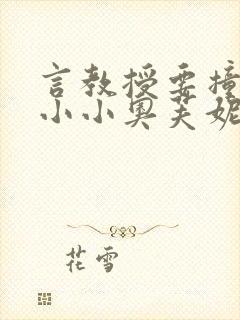 言教授要撞
小小奥芙妮
花雪